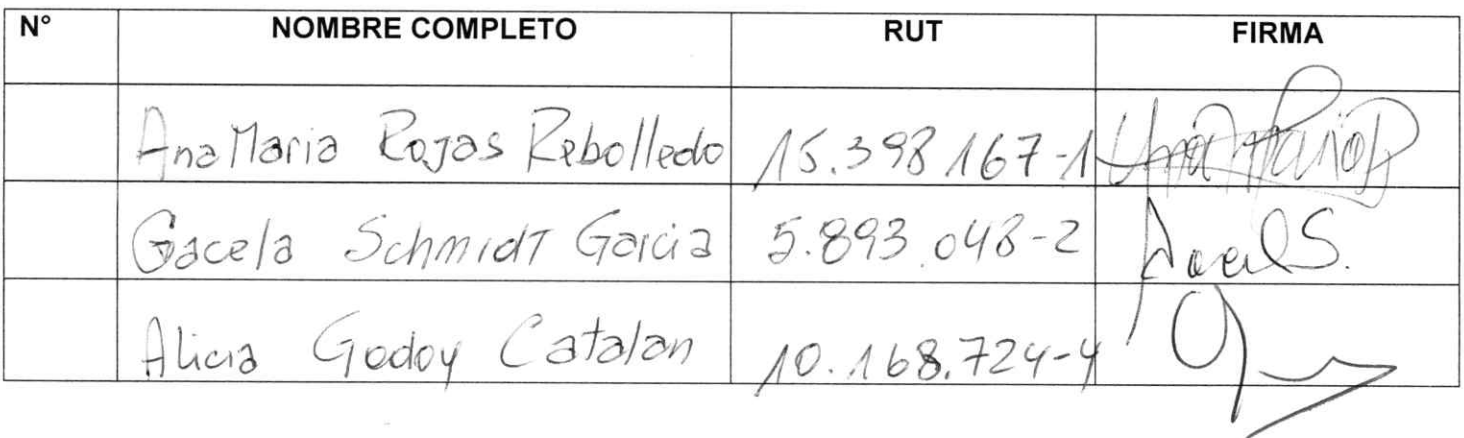 N° NOMBRE COMPLETO RUT FIRMA
Ana Maria Rojas Rebolledo 15.398.167-1
Gacela Schmidt Garcia 5.893.048-2
Alicia Godoy Catalan 10.168.724-4